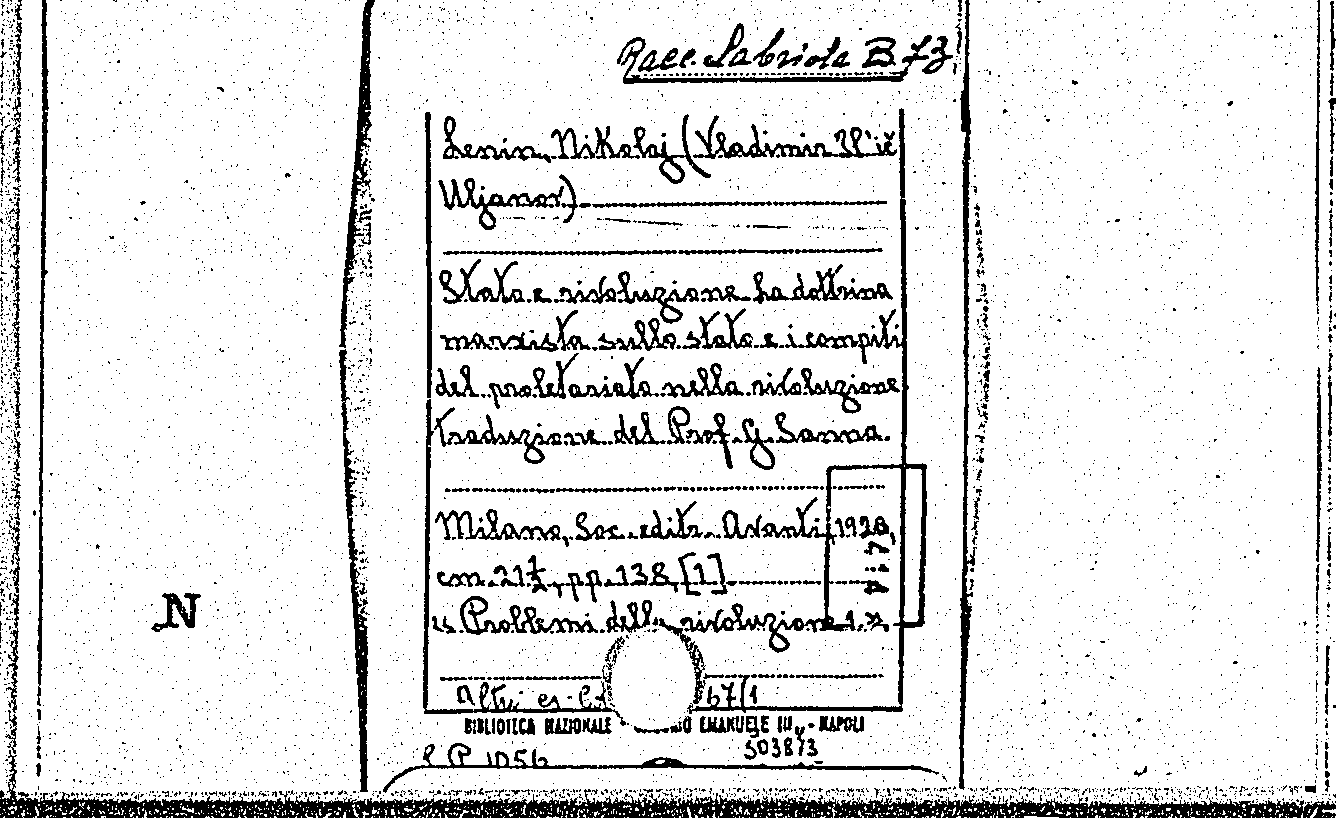 Racc. Labriola B. 73
Lenin, Nikolaj (Vladimir Il'ič
Uljanov)
Stato e rivoluzione La dottrina
marxista sullo stato e i compiti
del proletariato nella rivoluzione
traduzione del Prof. G. Sanna.
Milano, Soc. editr. Avanti, 1920,
cm. 21½, pp. 138, [1]
« Problemi della rivoluzione 1. »
Altri es.
BIBLIOTECA NAZIONALE EMANUELE III - NAPOLI
503873
N